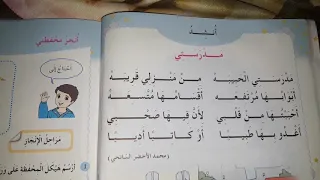 أنشد
مدرستي
مدرستي الحبيبة من منزلي قريبة
أبوابها مرتفعة أقسامها متسعة
أحببتها من قلبي لأن فيها صحبي
أغدو بها طبيبا أو كاتبا أديبا
(محمد الأخضر السائحي)
أنجز محفظتي
أحتاج إلى
مراحل الإنجاز
أرسم هيكل المحفظة على